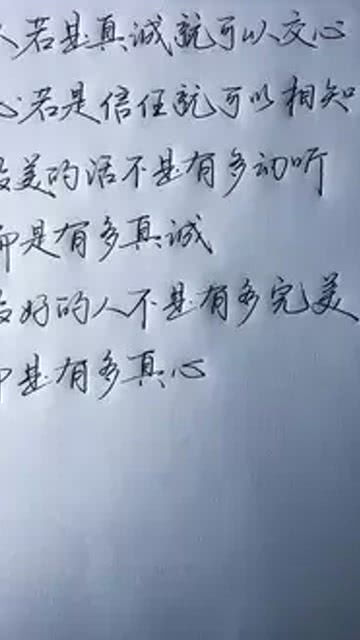 人若是真诚就可以交心
心若是信任就可以相知
最美的话不是有多动听
而是有多真诚
最好的人不是有多完美
而是有多真心